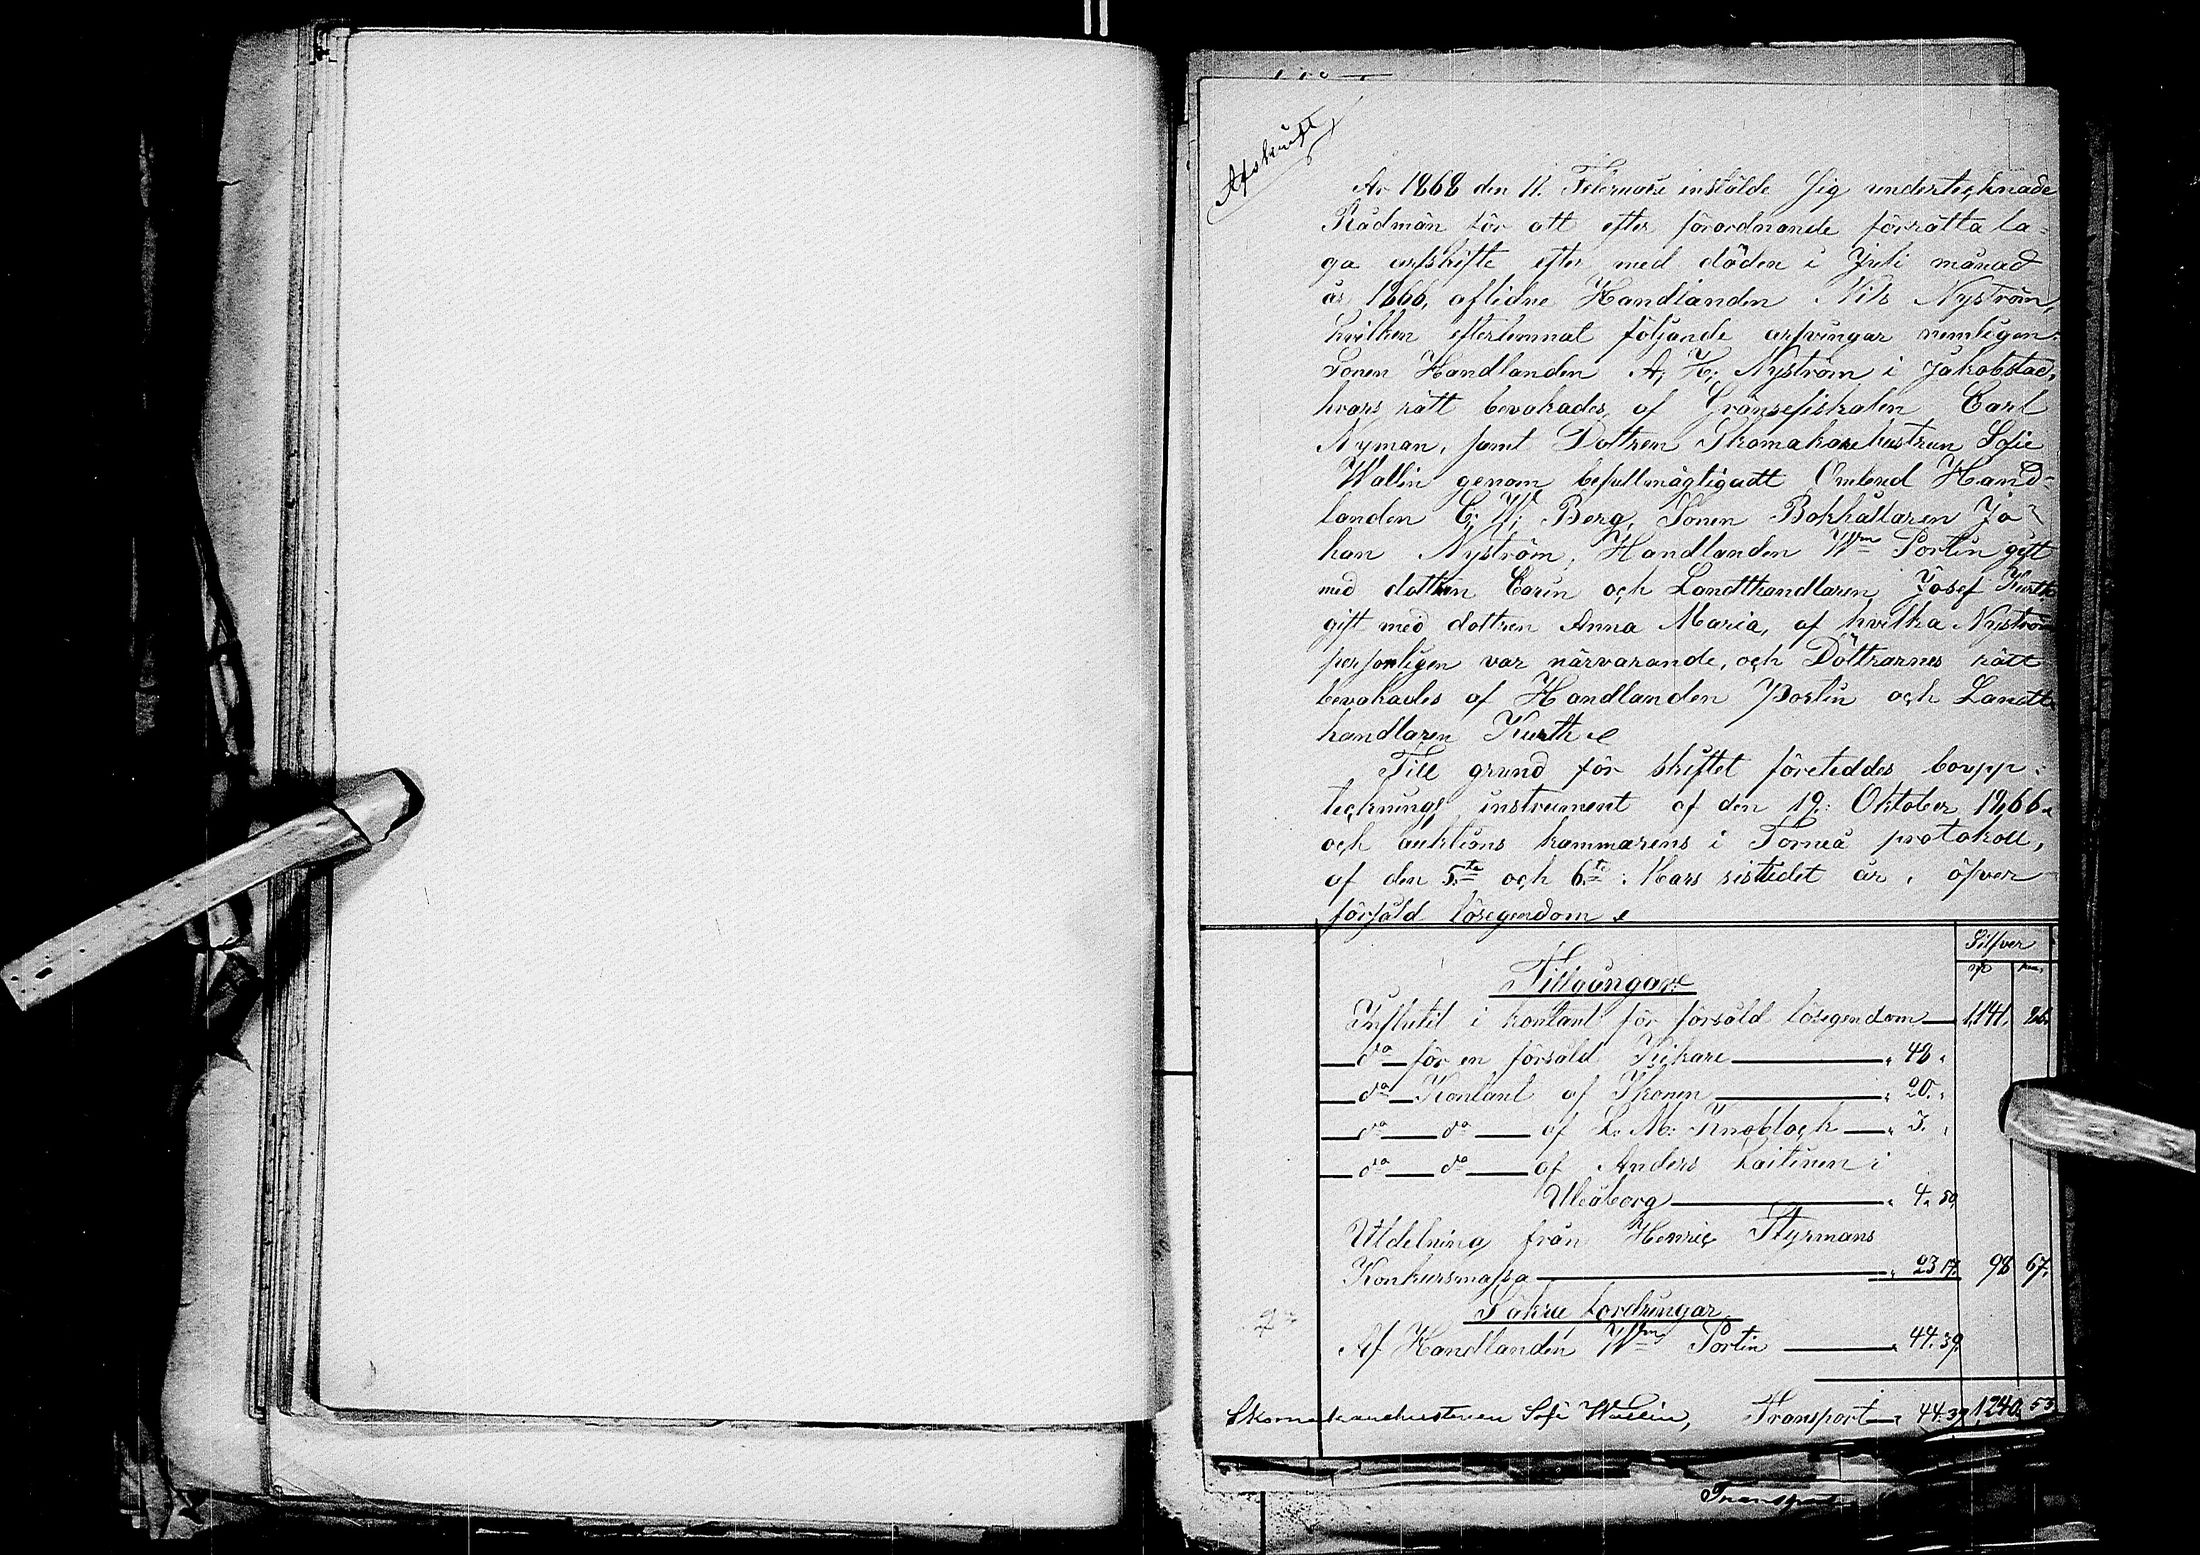 Afskrift
År 1868 den 11. Februari instälde sig undertecknade
Rådmän för att efter förordnande förrätta la-
ga arfskifte efter med döden i Juli månad
år 1866, aflidne Handlanden Nils Nyström,
hvilken efterlemnat följande arfvingar nemligen:
Sonen Handlanden A. H. Nyström i Jakobstad,
hvars rätt bevakades af Gränsefiskalen Carl
Nyman, samt Dottren Skomakarehustrun Sofie
Wallin genom befullmägtigadt Ombud Hand-
landen C. W. Berg, Sonen Bokhållaren Jo-
han Nyström, Handlanden Wm Portin gift
med dottren Carin och Landthandlaren Josef Kurth
gift med dottren Anna Maria, af hvilka Nyström
personligen var närvarande, och Döttrarnes rätt
bevakades af Handlanden Portin och Landt-
handlaren Kurth
Till grund för skiftet företeddes boupp-
tecknings instrument af den 19. Oktober 1866
och auktions kammarens i Torneå protokoll,
af den 5te och 6te Mars sistledet år, öfver
försåld lösegendom
Silfver
Tillgångar
Influtit i kontant för försåld lösegendom 1,141. 86.
do för en försåld Kikare 48.
do Kontant af Ikonen 20.
do do af L. M. Knoblock 3.
do do af Anders Laitinen i
Uleåborg 4. 50.
Utdelning från Henric Styrmans
Konkursmassa 23 17. 98 67.
Säkra fordringar
Af Handlanden Wm Portin 44. 39.
Skomakarehustruen Sofi Wallin, Transport 44. 39 1240. 53
Transport